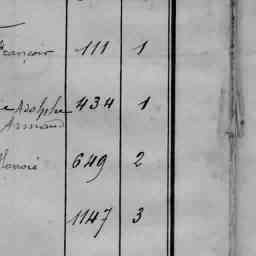 François 111 1
Adolphe 434 1
Armand
649 2
1147 3